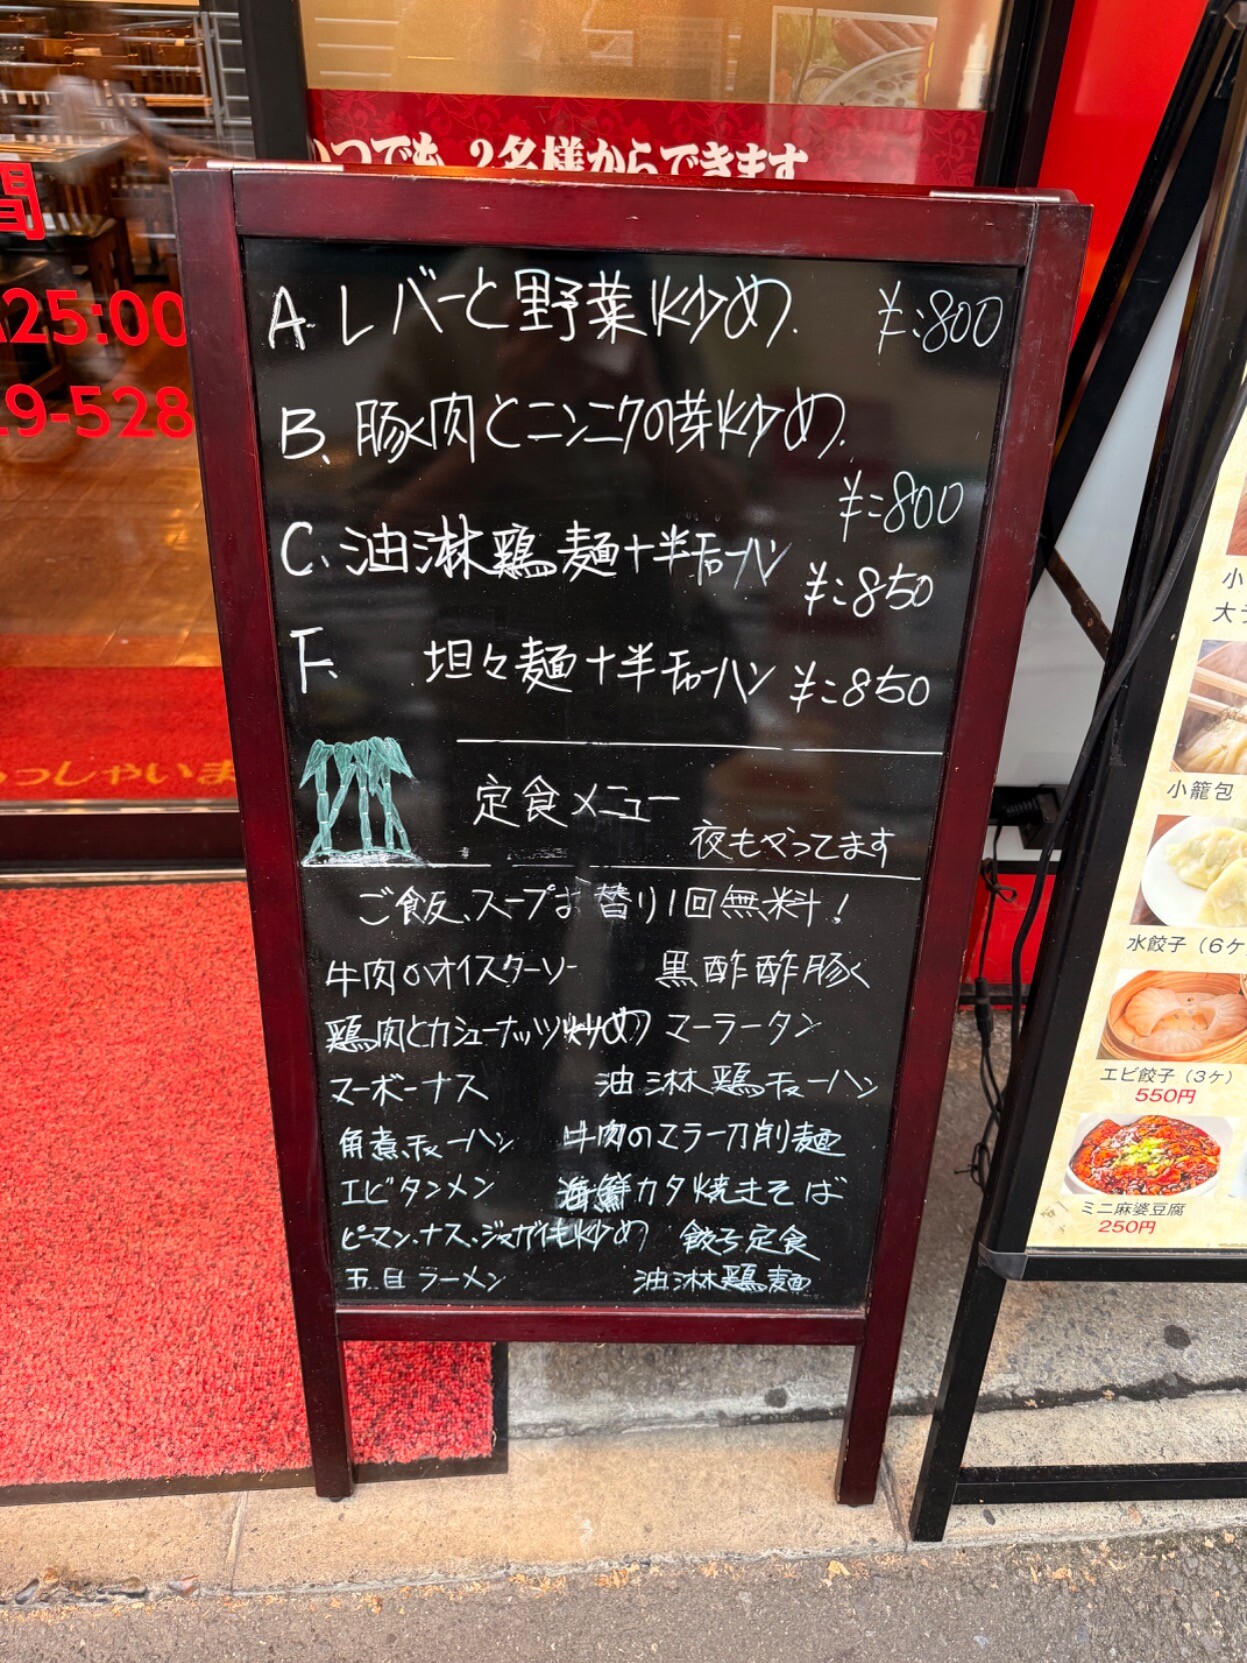 つでも 2名様からできます
間
25:00
9-528
っしゃいま
A. レバーと野菜炒め. ¥:800
B. 豚肉とニンニクの芽炒め.
¥:800
C. 油淋鶏麺+半チャーハン ¥:850
F. 坦々麺+半チャーハン ¥:850
定食メニュー
夜もやってます
ご飯、スープお替り1回無料!
牛肉のオイスターソー 黒酢酢豚
鶏肉とカシューナッツ炒め マーラータン
マーボーナス 油淋鶏チャーハン
角煮チャーハン 牛肉のマラー刀削麺
エビタンメン 海鮮カタ焼きそば
ピーマン、ナス、ジャガイモ炒め 餃子定食
五目ラーメン 油淋鶏麺
小
大
小籠包
水餃子(6ケ
エビ餃子(3ケ)
550円
ミニ麻婆豆腐
250円